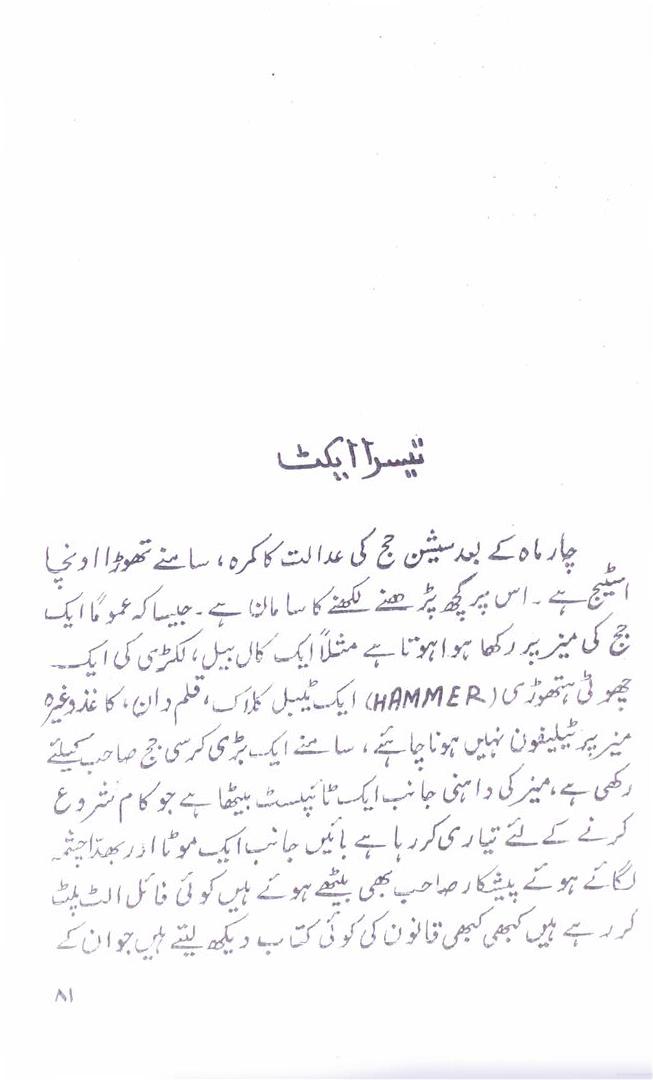 تیسرا ایکٹ
چار ماہ کے بعد سیشن جج کی عدالت کا کمرہ، سامنے تھوڑا اونچا
اسٹیج ہے۔ اس پر کچھ پڑھنے لکھنے کا سامان ہے۔ جیسا کہ عموماً ایک
جج کی میز پر رکھا ہوا ہوتا ہے مثلاً ایک کال بیل، لکڑی کی ایک
چھوٹی ہتھوڑی (HAMMER) ایک ٹیبل کلاک، قلم دان، کاغذ وغیرہ
میز پر ٹیلیفون نہیں ہونا چاہئے، سامنے ایک بڑی کرسی جج صاحب کیلئے
رکھی ہے، میز کی داہنی جانب ایک ٹائپسٹ بیٹھا ہے جو کام شروع
کرنے کے لئے تیاری کر رہا ہے بائیں جانب ایک موٹا اور بھدا چشمہ
لگائے ہوئے پیشکار صاحب بھی بیٹھے ہوئے ہیں کوئی فائل الٹ پلٹ
کر رہے ہیں کبھی کبھی قانون کی کوئی کتاب دیکھ لیتے ہیں جو ان کے
۸۱